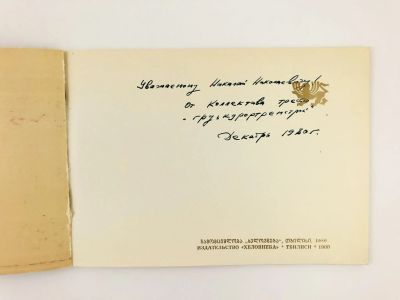 Уважаемому Николай Николаевичу!
От Коллектива треста
"Грузкурортрemстрой"
Декабрь 1980г.
ᲒᲐᲛᲝᲛᲪᲔᲛᲚᲝᲑᲐ „ᲮᲔᲚᲝᲕᲜᲔᲑᲐ“, ᲗᲑᲘᲚᲘᲡᲘ, 1980
ИЗДАТЕЛЬСТВО «ХЕЛОВНЕБА» • ТБИЛИСИ • 1980